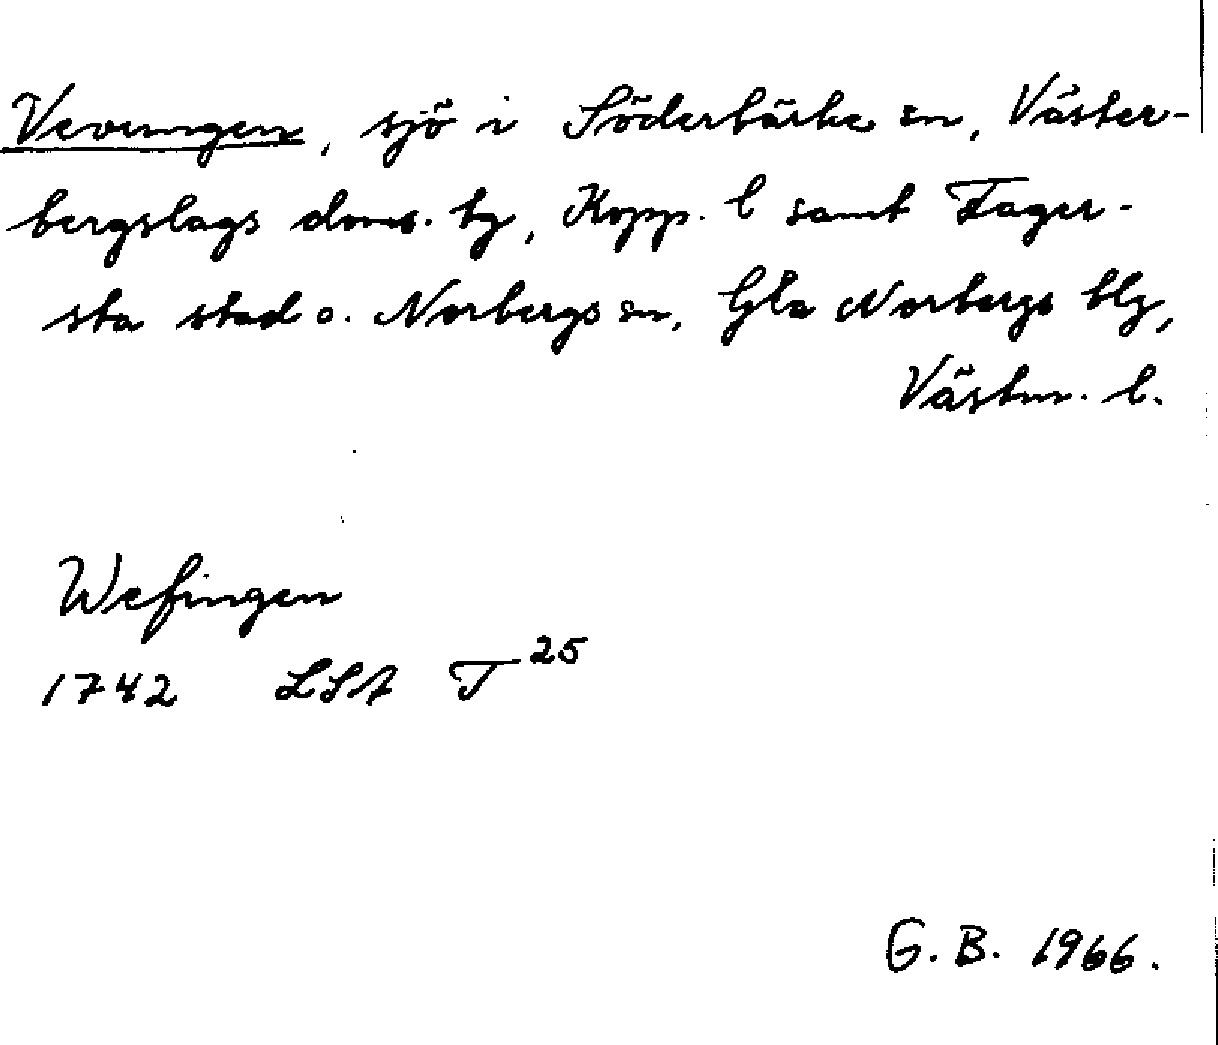 Vevungen, sjö i Söderbärke sn, Väster-
bergslags doms. tg, Kopp. l samt Fager-
sta stad o. Norbergs sn, Gla Norbergs blg,
Västm. l.
Wefingen
1742 LSA T25
G. B. 1966.